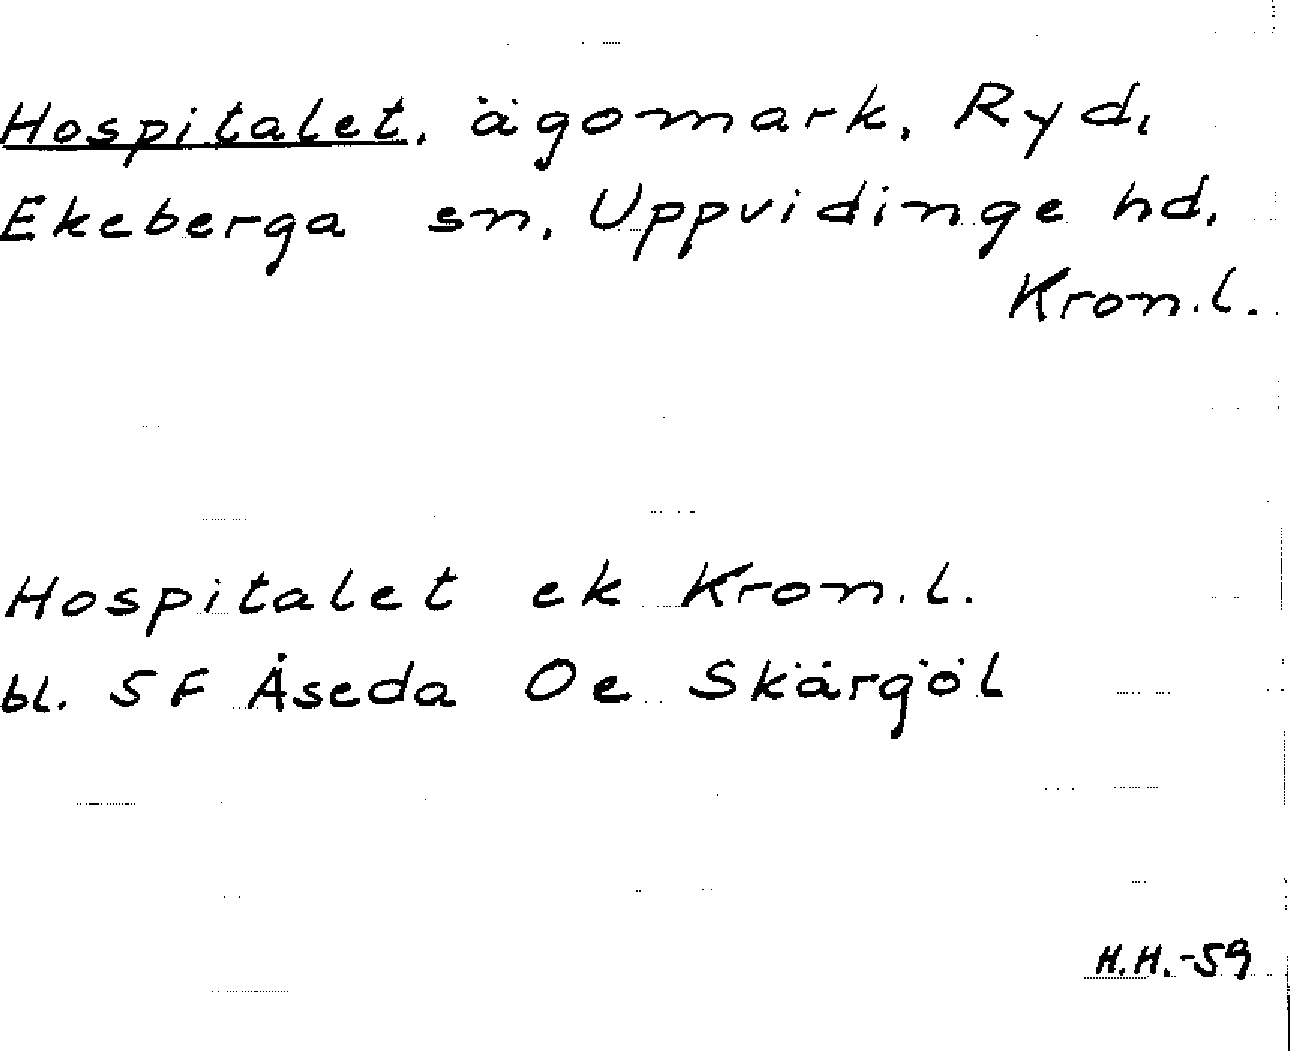 Hospitalet, ägomark, Ryd,
Ekeberga sn, Uppvidinge hd,
Kron.l.
Hospitalet ek Kron.l.
bl. 5F Åseda Oe Skärgöl
H.H.-59